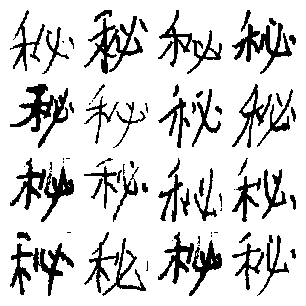 秘秘秘秘
秘秘秘秘
秘秘秘秘
秘秘秘秘